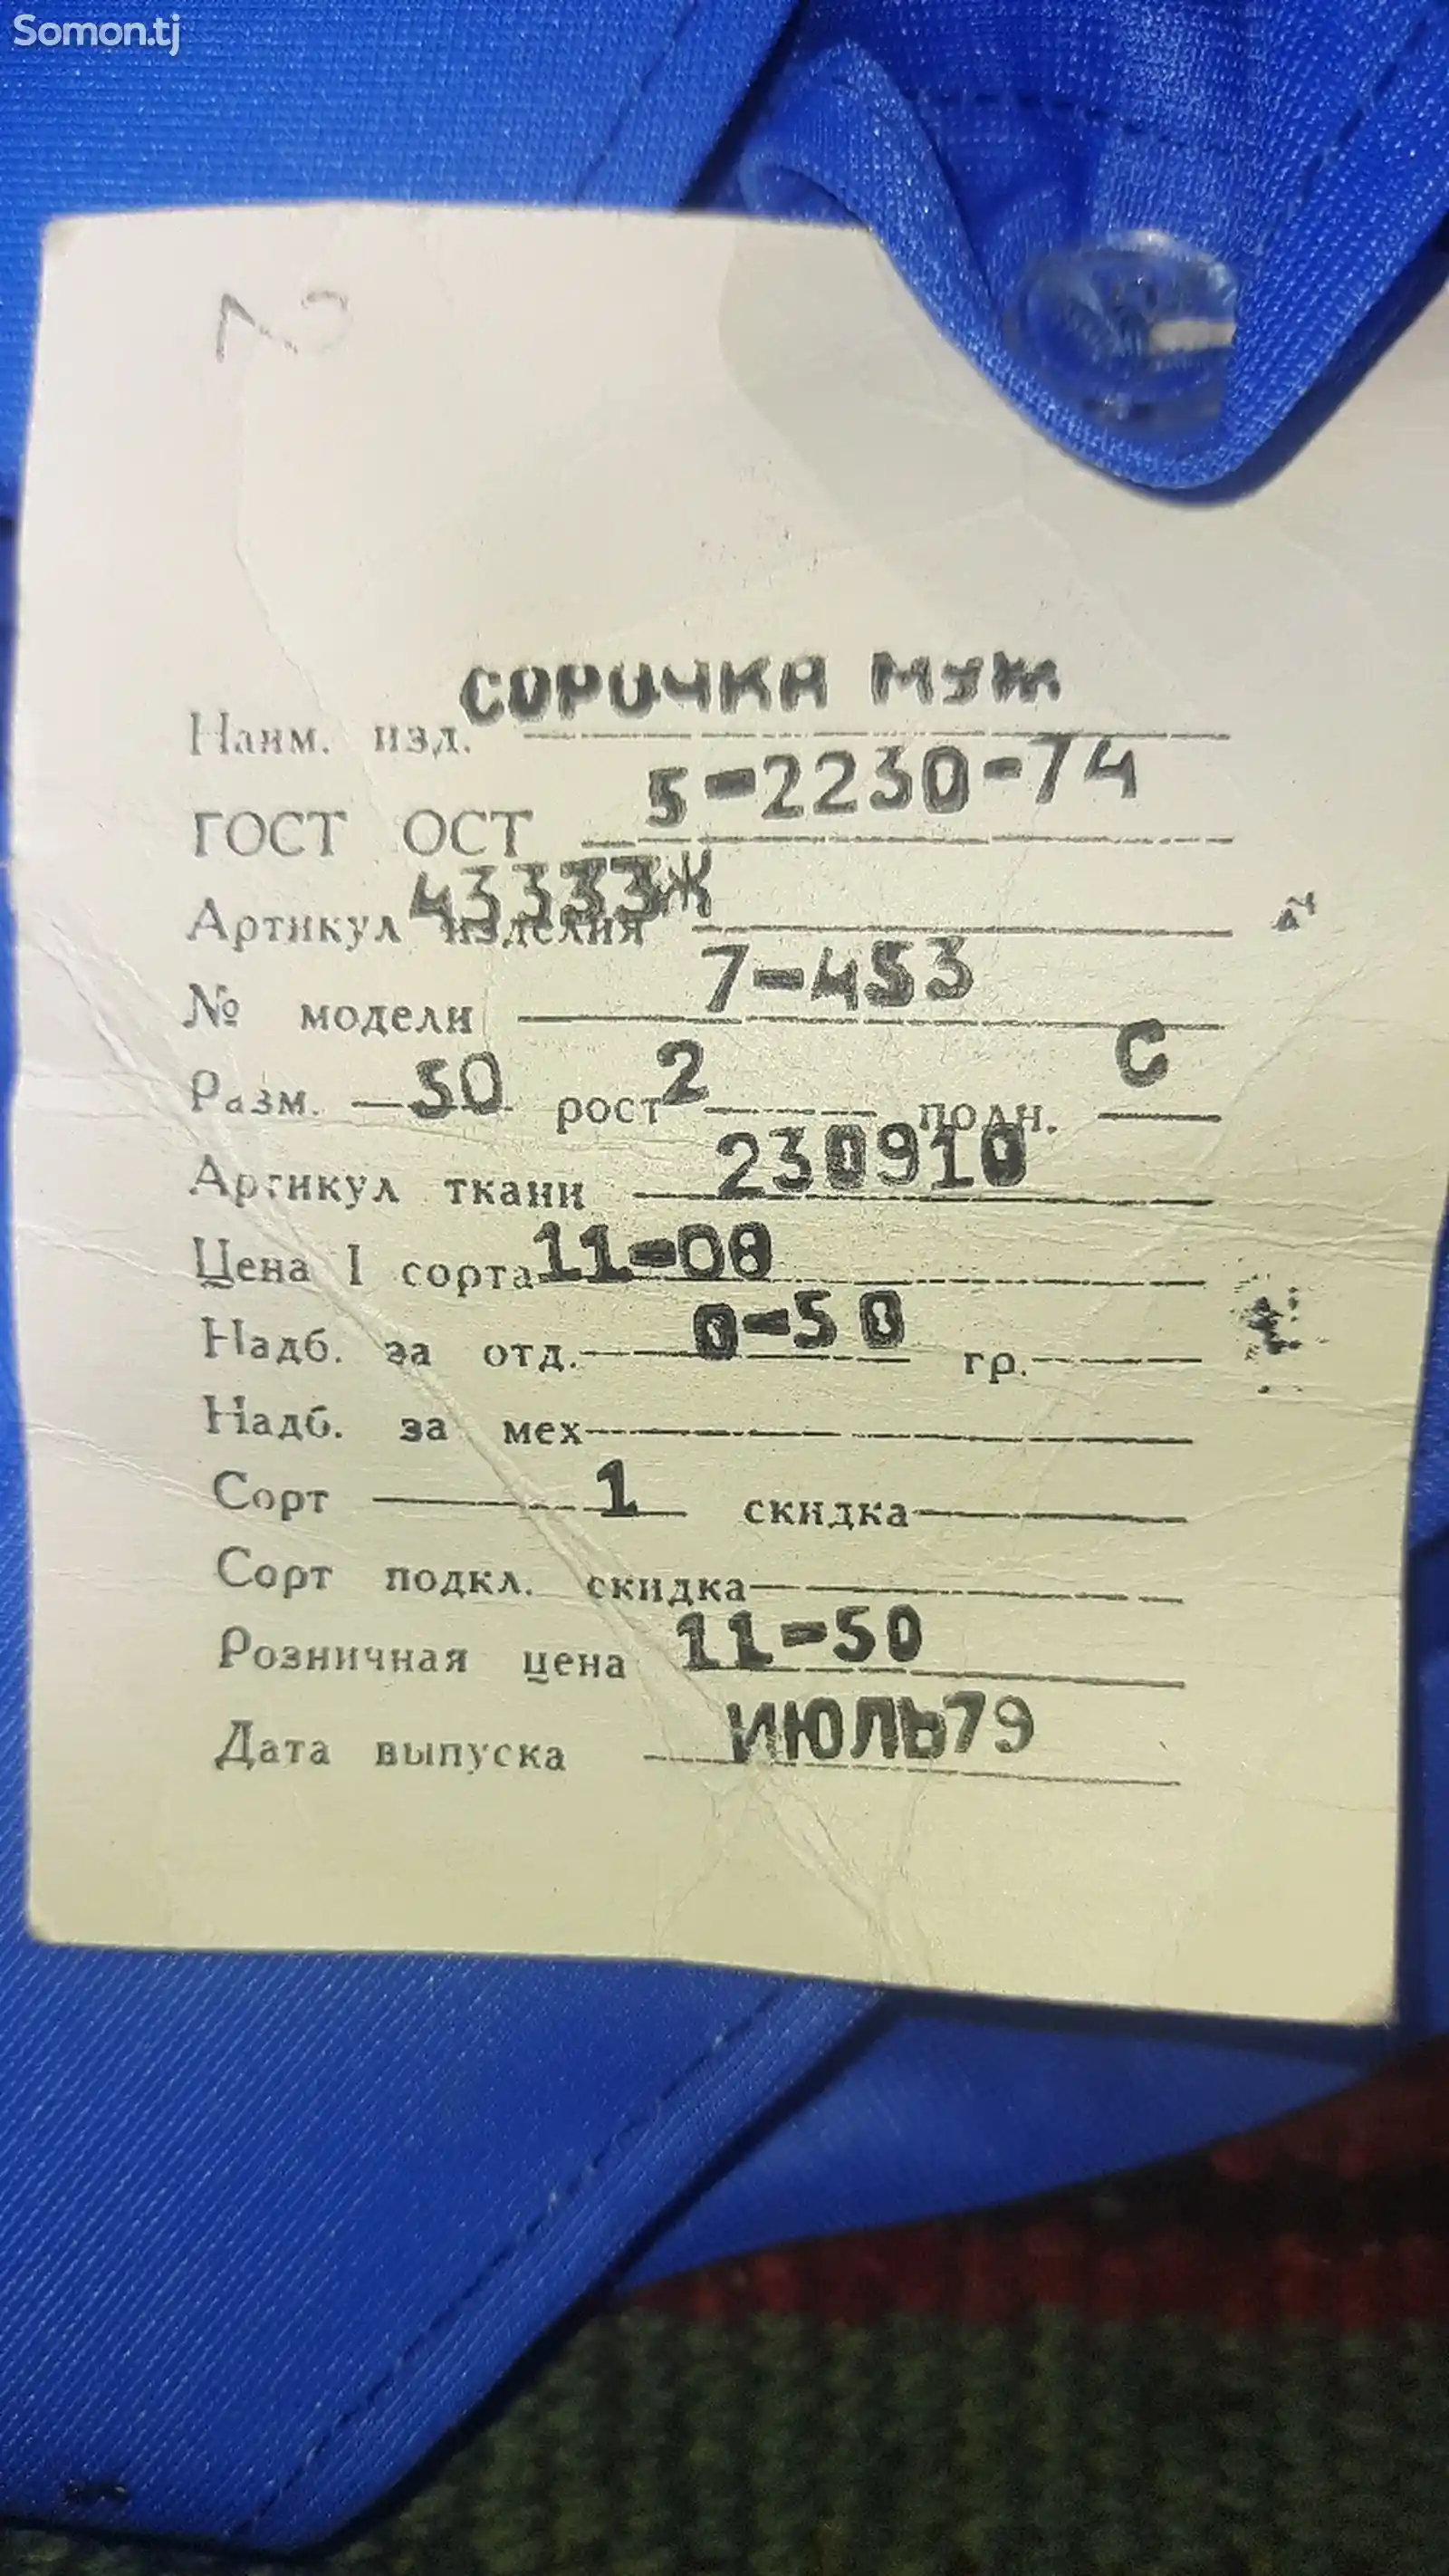 Somon.tj
Наим. изд. СОРОЧКА МУЖ
ГОСТ ОСТ 5-2230-74
Артикул изделия 43333Ж
№ модели 7-453
Разм. 50 рост 2 полн. С
Артикул ткани 230910
Цена I сорта 11-00
Надб. за отд. 0-50 гр.
Надб. за мех
Сорт 1 скидка
Сорт подкл. скидка
Розничная цена 11-50
Дата выпуска ИЮЛЬ79